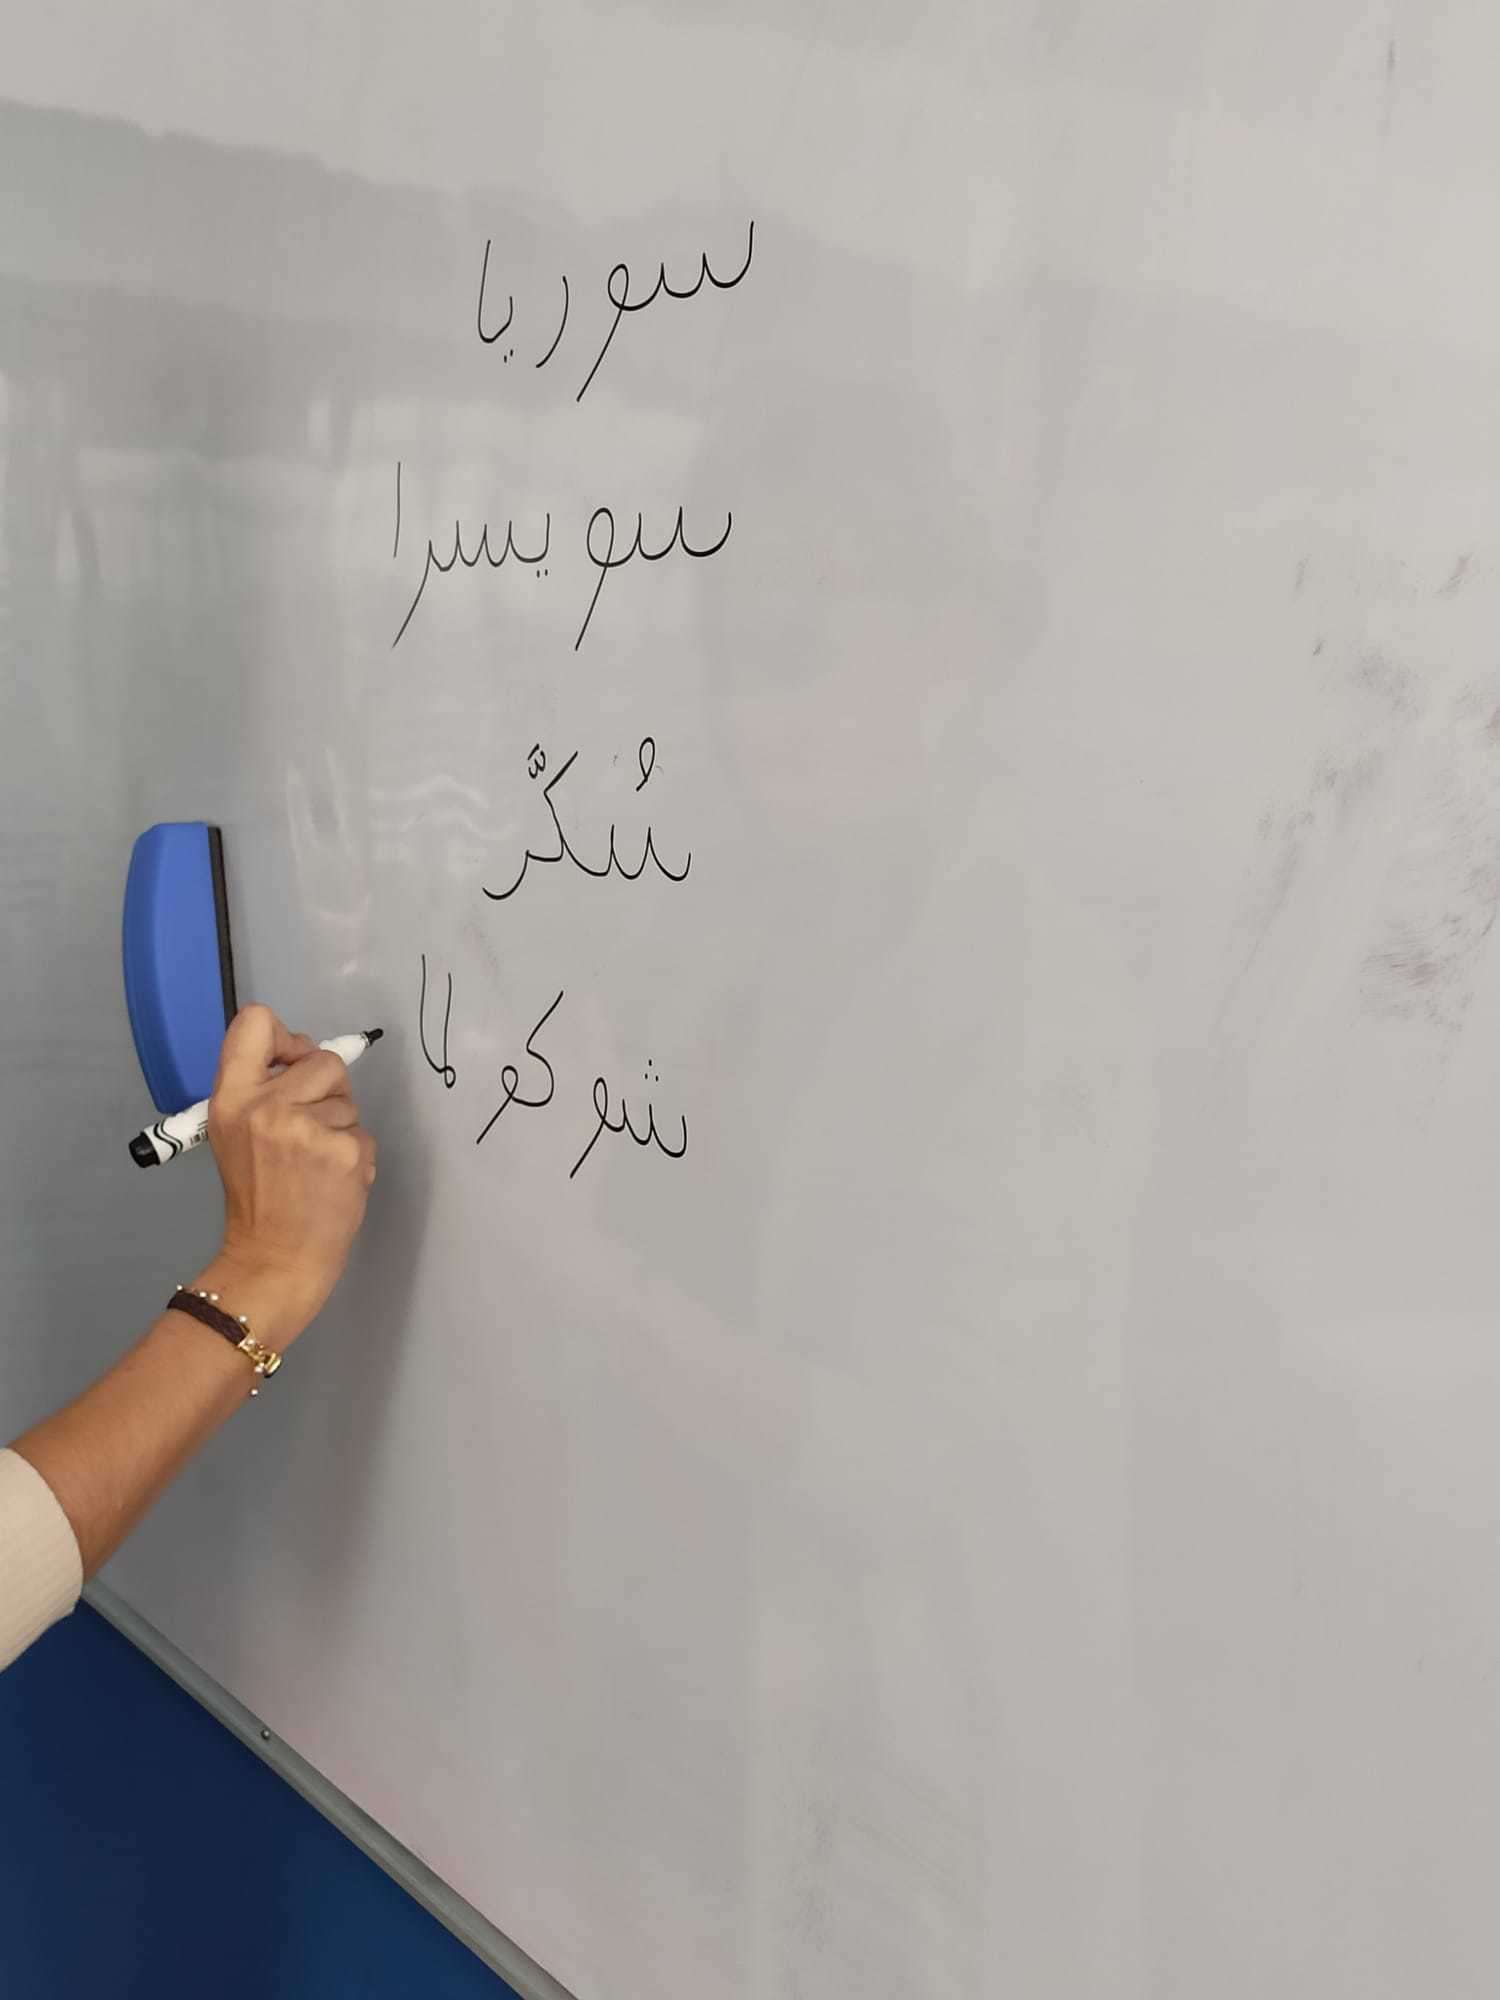 سوريا
سويسرا
سُكَّر
شوكولا